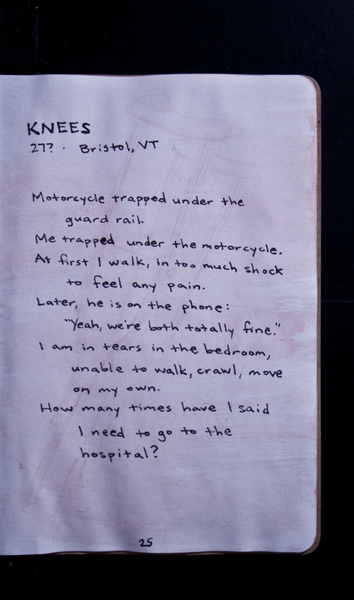 KNEES
27? · Bristol, VT
Motorcycle trapped under the
guard rail.
Me trapped under the motorcycle.
At first I walk, in too much shock
to feel any pain.
Later, he is on the phone:
"Yeah, we're both totally fine."
I am in tears in the bedroom,
unable to walk, crawl, move
on my own.
How many times have I said
I need to go to the
hospital?
25